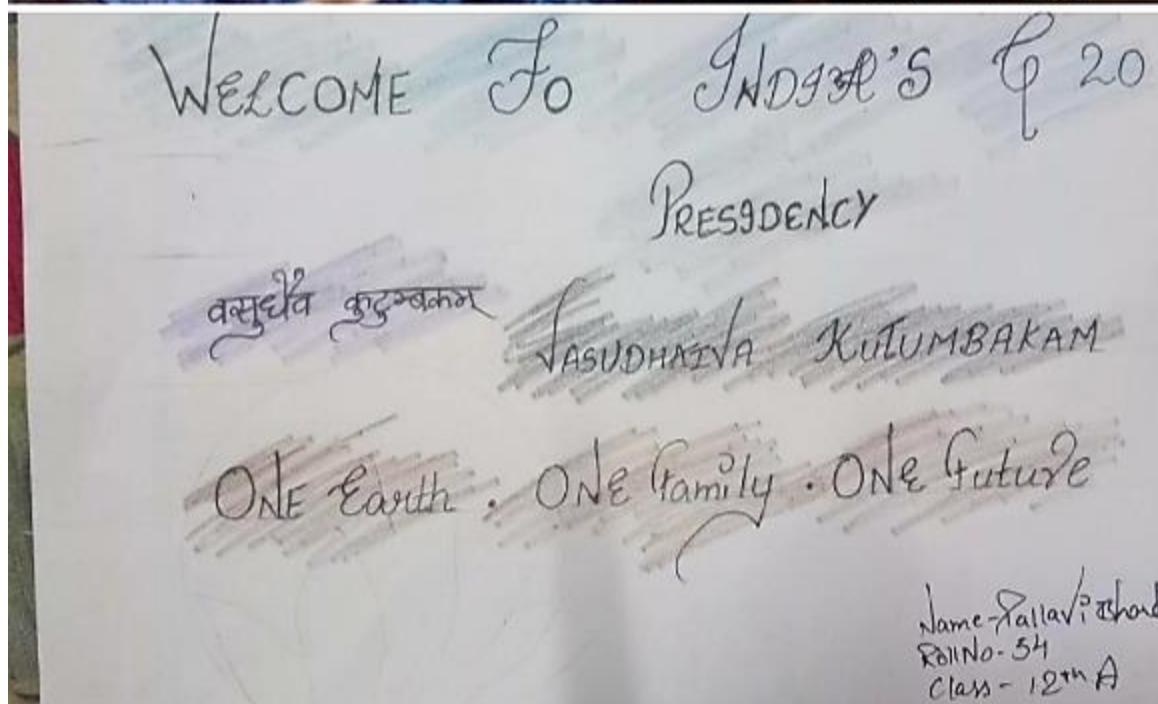 WELCOME To INDIA'S G 20
PRESIDENCY
वसुधैव कुटुम्बकम्
VASUDHAIVA KUTUMBAKAM
ONE Earth . ONE family . ONE future
Name - Pallavi
Roll No - 54
Class - 12th A